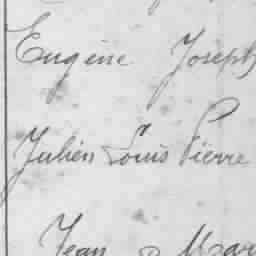 Eugène Joseph
Julien Louis Pierre
Jean